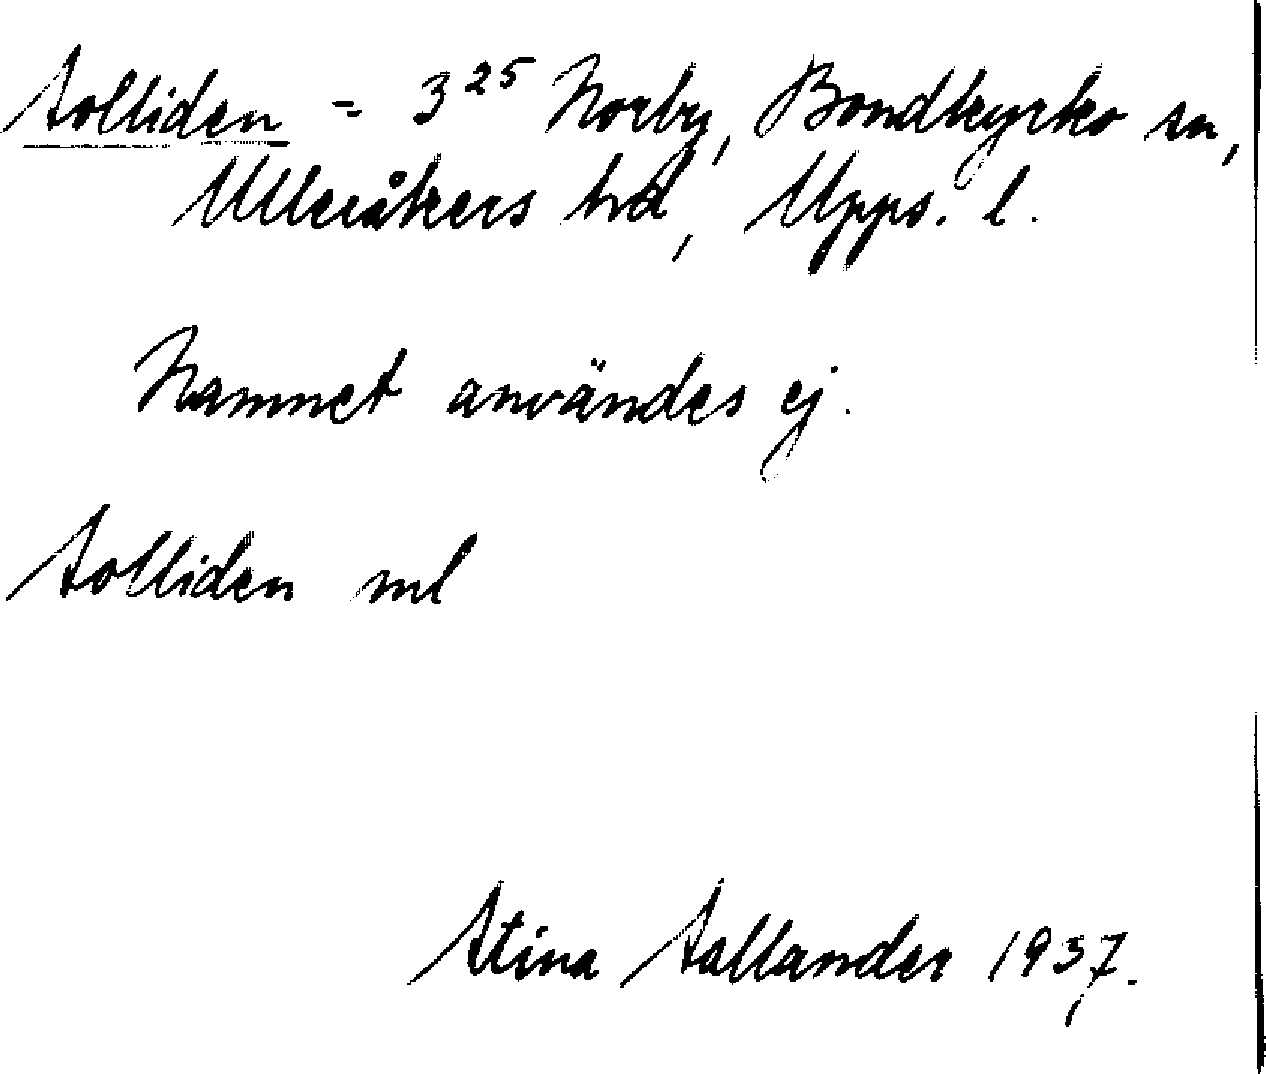 Solliden = 3²⁵ Norby, Bondkyrko sn,
Ulleråkers hd, Upps. l.
Namnet användes ej.
Solliden ml
Stina Sallander 1937.